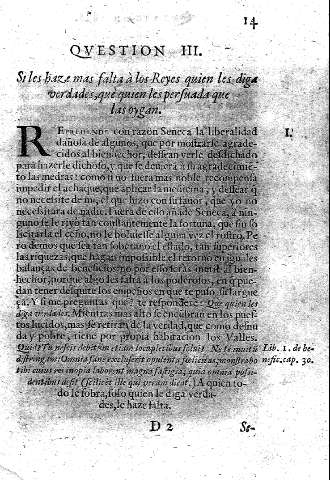 14
QVESTION III.
Si les haze mas falta à los Reyes quien les diga
verdades, que quien les persuada que
las oygan.
REPREHENDE con razon Seneca la liberalidad I.
dañosa de algunos, que por mostrarse agrade-
cidos al bienhechor, dessean verle desdichado
para hazerle dichoso, y que se deuiera à su agradecimie-
to las medras: como si no fuera mas noble recompensa
impedir el achaque, que aplicar la medicina, y dessear q̃
no necesite de mi, el que hizo con su fauor, que yo no
necesitara de nadie. Fuera de esso añade Seneca, à nin-
guno se le rio tan constantemente la fortuna, que
el ceño, no le boluiesse alguna vez el rostro. Pe
ro demos que sea tan tan superiores
las riquezas, que hagan impossible el retorno en iguales
balanças de beneficios: no por esso seràs inutil al bien-
hechor, porque algo les falta à los poderosos, en q̃ pue-
dan tener desquite los empeños en que te puso su largue-
ça. Y si me preguntas que? te respondere: Que quien les
diga verdades. Mientras mas alto se encumbran en los pues-
tos lucidos, mas se retiran de la verdad, que como desnu-
da y pobre, tiene por propia habitacion los Valles.
Quid? Tu nescis debitum etiam locupletibus solui? Ne te multū Lib. 6. de be-
distringam: Omnia sane excluserit opulenta felicitas, monstrabo nefic. cap. 30.
tibi cuius inopia laborent magna fastigia, quid omnia possi-
dentibus desit (scilicet ille qui verum dicat.) A quien to-
do le sobra, solo quien le diga verda-
des, le haze falta.
D 2 Se-